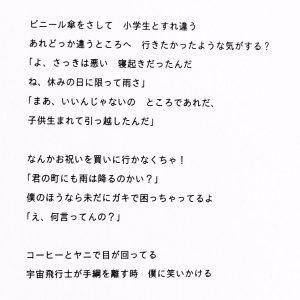 ビニール傘をさして　小学生とすれ違う
あれどっか違うところへ　行きたかったような気がする？
「よ、さっきは悪い　寝起きだったんだ
ね、休みの日に限って雨さ」
「まあ、いいんじゃないの　ところであれだ、
子供生まれて引っ越したんだ」

なんかお祝いを買いに行かなくちゃ！
「君の町にも雨は降るのかい？」
僕のほうなら未だにガキで困っちゃってるよ
「え、何言ってんの？」

コーヒーとヤニで目が回ってる
宇宙飛行士が手綱を離す時　僕に笑いかける